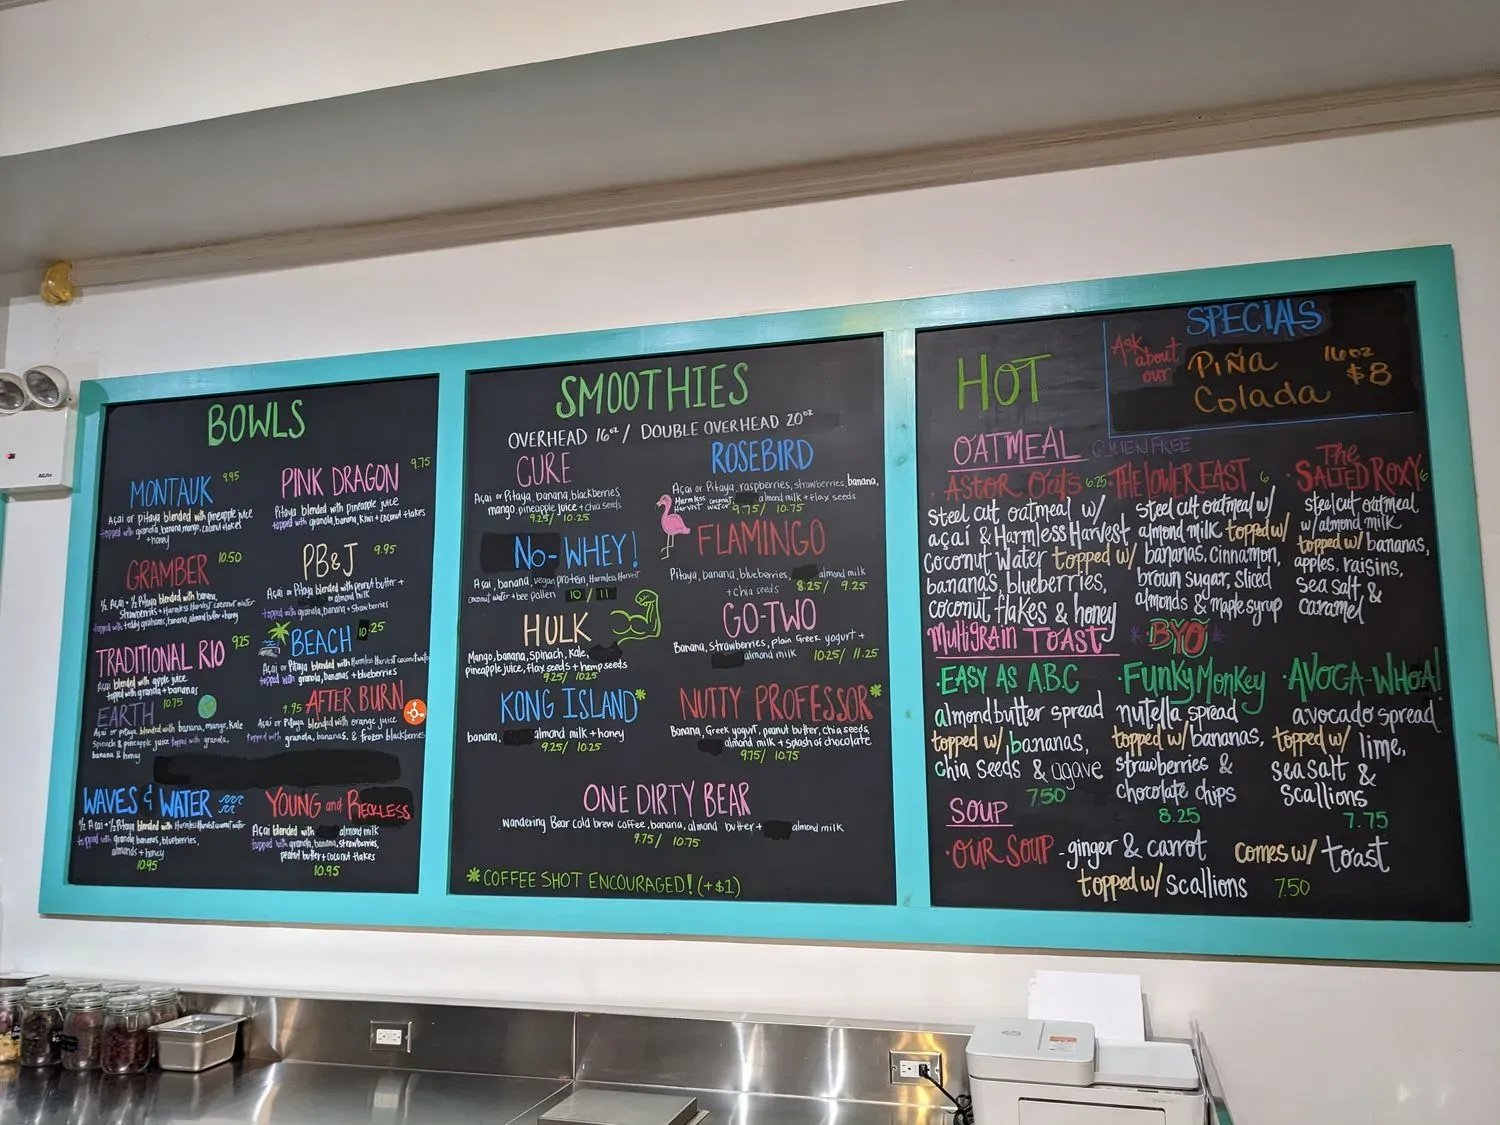 BOWLS
MONTAUK 9.95
Açai or pitaya blended with pineapple juice
topped with granola, banana, mango, coconut flakes
+ honey
PINK DRAGON 9.75
Pitaya blended with pineapple juice
topped with granola, banana, kiwi + coconut flakes
GRAMBER 10.50
½ Açai + ½ Pitaya blended with banana,
strawberries + Harmless Harvest coconut water
topped with teddy grahams, banana, almond butter + honey
PB&J 9.95
Açai blended with peanut butter +
almond milk
topped with granola, banana + strawberries
TRADITIONAL RIO 9.25
Açai blended with apple juice
topped with granola + bananas
BEACH 10.25
Açai or Pitaya blended with Harmless Harvest coconut water
topped with granola, bananas + blueberries
EARTH 10.75
Açai or pitaya blended with banana, mango, kale
spinach & pineapple juice topped with granola,
banana & honey
9.95 AFTER BURN
Açai or Pitaya blended with orange juice
topped with granola, bananas, & frozen blackberries
WAVES & WATER
½ Açai + ½ Pitaya blended with Harmless Harvest coconut water
topped with granola, bananas, blueberries,
almonds + honey
10.95
YOUNG and RECKLESS
Açai blended with almond milk
topped with granola, banana, strawberries,
peanut butter + coconut flakes
10.95
SMOOTHIES
OVERHEAD 16oz / DOUBLE OVERHEAD 20oz
CURE
Açai or Pitaya, banana, blackberries,
mango, pineapple juice + chia seeds
9.25/ 10.25
ROSEBIRD
Açai or Pitaya, raspberries, strawberries, banana,
Harmless Harvest coconut water almond milk + flax seeds
9.75/ 10.75
No-WHEY!
Açai, banana, vegan protein Harmless Harvest
coconut water + bee pollen 10 / 11
FLAMINGO
Pitaya, banana, blueberries, almond milk
+ chia seeds 8.25/ 9.25
HULK
Mango, banana, spinach, kale,
pineapple juice, flax seeds + hemp seeds
9.25/ 10.25
GO-TWO
Banana, strawberries, plain Greek yogurt +
almond milk 10.25/ 11.25
KONG ISLAND*
banana, almond milk + honey
9.25/ 10.25
NUTTY PROFESSOR*
Banana, Greek yogurt, peanut butter, chia seeds,
almond milk + splash of chocolate
9.75/ 10.75
ONE DIRTY BEAR
Wandering Bear cold brew coffee, banana, almond butter + almond milk
9.75/ 10.75
*COFFEE SHOT ENCOURAGED! (+$1)
HOT
SPECIALS
Ask about our
Piña
Colada
16oz
$8
OATMEAL GLUTEN FREE
·Astor Oats 6.25
steel cut oatmeal w/
açai & Harmless Harvest
Coconut Water topped w/
banana's, blueberries,
coconut flakes & honey
·THE LOWER EAST 6
steel cut oatmeal w/
almond milk topped w/
bananas, cinnamon,
brown sugar, sliced
almonds & maple syrup
·The SALTED ROXY 6
steel cut oatmeal
w/ almond milk
topped w/ bananas,
apples, raisins,
sea salt, &
caramel
MultiGRAIN TOAST
*BYO*
·EASY AS A.B.C
almond butter spread
topped w/ bananas,
chia seeds & agave
7.50
·Funky Monkey
nutella spread
topped w/ bananas,
strawberries &
chocolate chips
8.25
·AVOCA-WHOA!
avocado spread
topped w/ lime,
sea salt &
scallions
7.75
SOUP
·OUR SOUP - ginger & carrot comes w/ toast
topped w/ scallions 7.50